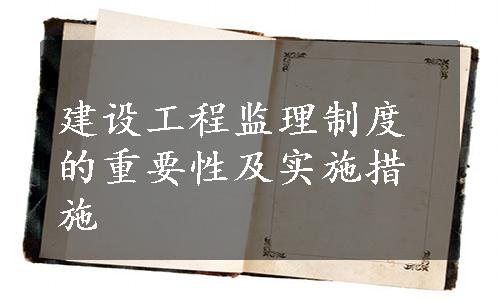 建设工程监理制度
的重要性及实施措
施